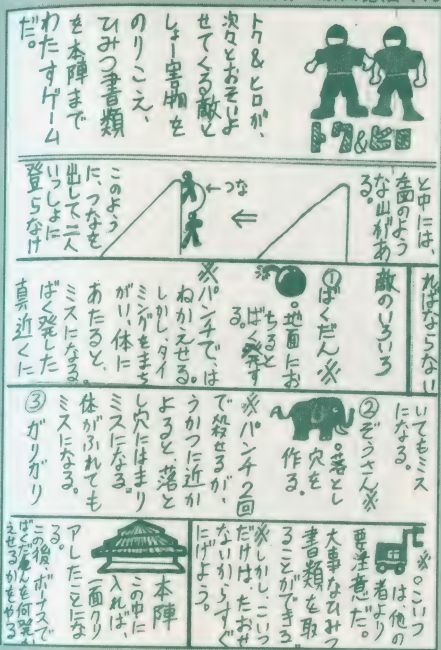 トク&ヒロ
トク&ヒロが、
次々とおそいよ
せてくる敵と
しょー害物を
のりこえ、
ひみつ書類
を本陣まで
わたすゲーム
だ。
と中には、
左図のよう
な山があ
る。
つな
このよう
に、つなを
出して二人
いっしょに
登らなけ
ればならない
敵のいろいろ
①ばくだん※
。地面にお
ちると
ばく発す
る。
※パンチで、は
ねかえせる。
しかし、タイ
ミングをまち
がい、体に
あたると、
ミスになる。
ばく発した
真近くに
いてもミス
になる。
②ぞうさん※
。落とし
穴を
作る。
※パンチ2回
で殺せるが、
うかつに近か
よると、落と
し穴にはまり
ミスになる。
体がふれても
ミスになる。
③ガリガリ
※。こいつ
は他の
者より
要注意だ。
大事なひみつ
書類を取
ることができる。
※しかし、こいつ
だけは、たおせ
ないからすぐ
にげよう。
本陣
この中に
入れば、
一面クリ
アしたことにな
る。
この後、ボーナスで
ばくだんを何発か
えせるかをやる